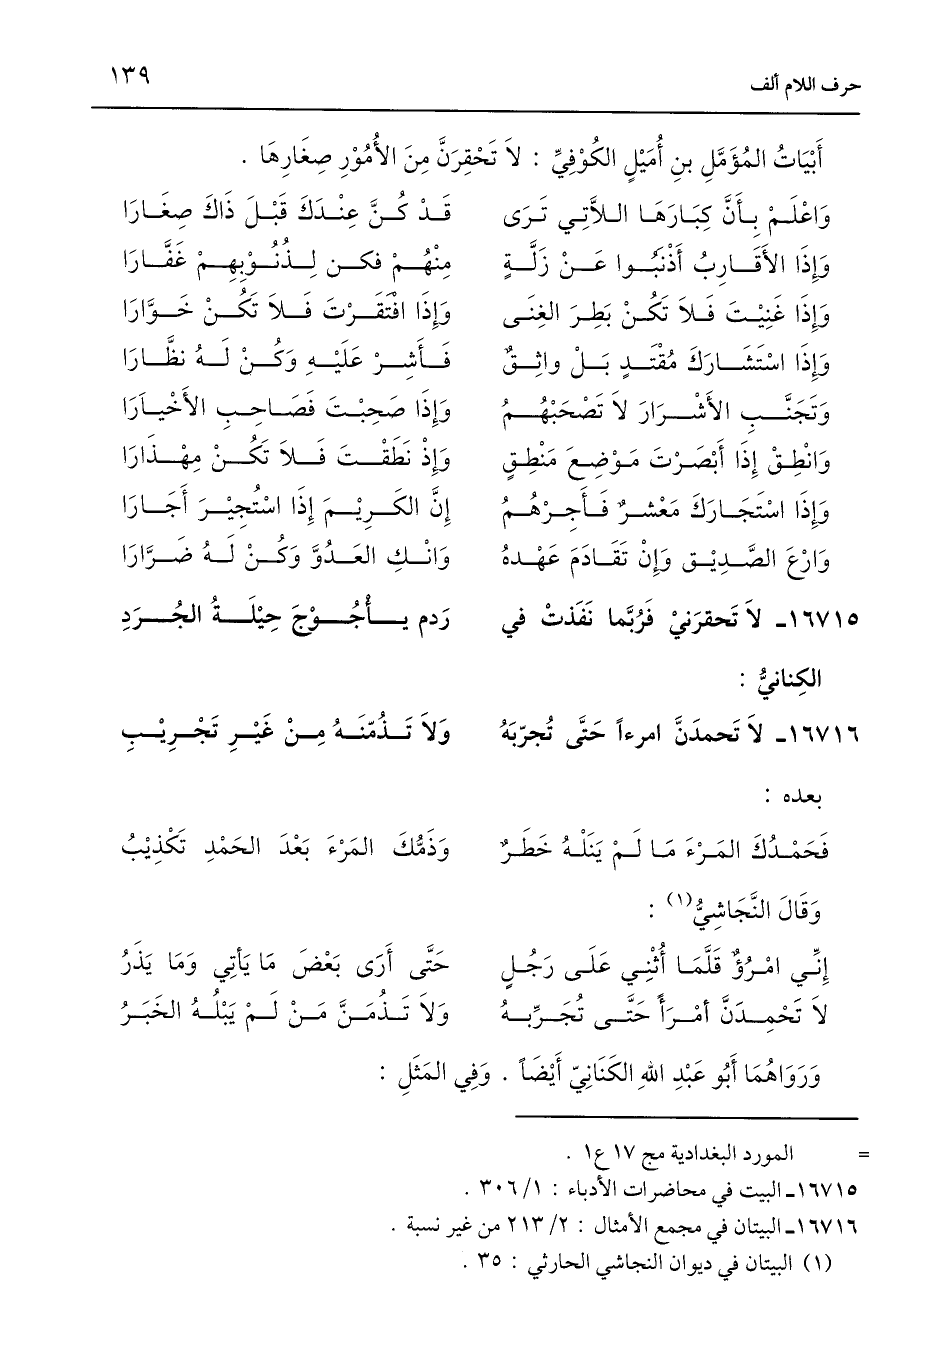 حرف اللام ألف ١٣٩
أَبْيَاتُ المُؤَمَّلِ بنِ أُمَيْلٍ الكُوْفِيِّ : لاَ تَحْقِرَنَّ مِنَ الأُمُوْرِ صِغَارِهَا .
وَاعْلَمْ بِأَنَّ كِبَارَهَا اللاَّتِي تَرَى قَدْ كُنَّ عِنْدَكَ قَبْلَ ذَاكَ صِغَارَا
وَإِذَا الأَقَارِبُ أَذْنَبُوا عَنْ زَلَّةٍ مِنْهُمْ فكن لِذُنُوْبِهِمْ غَفَّارَا
وَإِذَا غَنِيْتَ فَلاَ تَكُنْ بَطِرَ الغِنَى وَإِذَا افْتَقَرْتَ فَلاَ تَكُنْ خَوَّارَا
وَإِذَا اسْتَشَارَكَ مُقْتَدٍ بَلْ وَاثِقٌ فَأَشِرْ عَلَيْهِ وَكُنْ لَهُ نَظَّارَا
وَتَجَنَّبِ الأَشْرَارَ لاَ تَصْحَبْهُمُ وَإِذَا صَحِبْتَ فَصَاحِبِ الأَخْيَارَا
وَانْطِقْ إِذَا أَبْصَرْتَ مَوْضِعَ مَنْطِقٍ وَإِذْ نَطَقْتَ فَلاَ تَكُنْ مِهْذَارَا
وَإِذَا اسْتَجَارَكَ مَعْشَرٌ فَأَجِرْهُمُ إِنَّ الكَرِيْمَ إِذَا اسْتُجِيْرَ أَجَارَا
وَارْعَ الصَّدِيْقِ وَإِنْ تَقَادَمَ عَهْدهُ وَانْكِ العَدُوَّ وَكُنْ لَهُ ضَرَّارَا
١٦٧١٥ـ لاَ تَحقرَنيْ فَرُبَّما نَفَذتْ في رَدم يـأْجُوْجَ حِيْلَةُ الجُرَدِ
الكِنانيُّ :
١٦٧١٦ـ لاَ تَحمدَنَّ امرءاً حَتَّى تُجرّبَهُ وَلاَ تَذُمّنَهُ مِنْ غَيْرِ تَجْرِيْبِ
بعده :
فَحَمْدُكَ المَرْءَ مَا لَمْ يَنَلْهُ خَطَرٌ وَذَمُّكَ المَرْءَ بَعْدَ الحَمْدِ تَكْذِيْبُ
وَقَالَ النَّجَاشِيُّ(١) :
إِنِّي امْرُؤٌ قَلَّمَا أُثْنِي عَلَى رَجُلٍ حَتَّى أَرَى بَعْضَ مَا يَأتِي وَمَا يَذَرُ
لاَ تَحْمِدَنَّ أمْرَأً حَتَّى تُجَرِّبهُ وَلاَ تَذُمَنَّ مَنْ لَمْ يَبْلُهُ الخَبَرُ
وَرَوَاهُمَا أَبُو عَبْدِ اللهِ الكَنَانِيّ أَيْضَاً . وَفِي المَثَلِ :
= المورد البغدادية مج ١٧ ع١ .
١٦٧١٥ـ البيت في محاضرات الأدباء : ١/ ٣٠٦ .
١٦٧١٦ـ البيتان في مجمع الأمثال : ٢/ ٢١٣ من غير نسبة .
(١) البيتان في ديوان النجاشي الحارثي : ٣٥ .